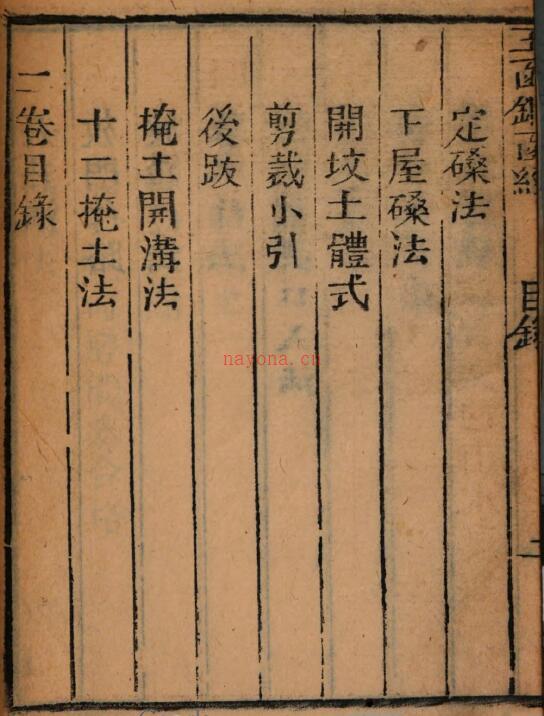 玉函銅函經 目錄
定磉法
下屋磉法
開坟土體式
剪裁小引
後跋
掩土開溝法
十二掩土法
二卷目錄
nayona.cn